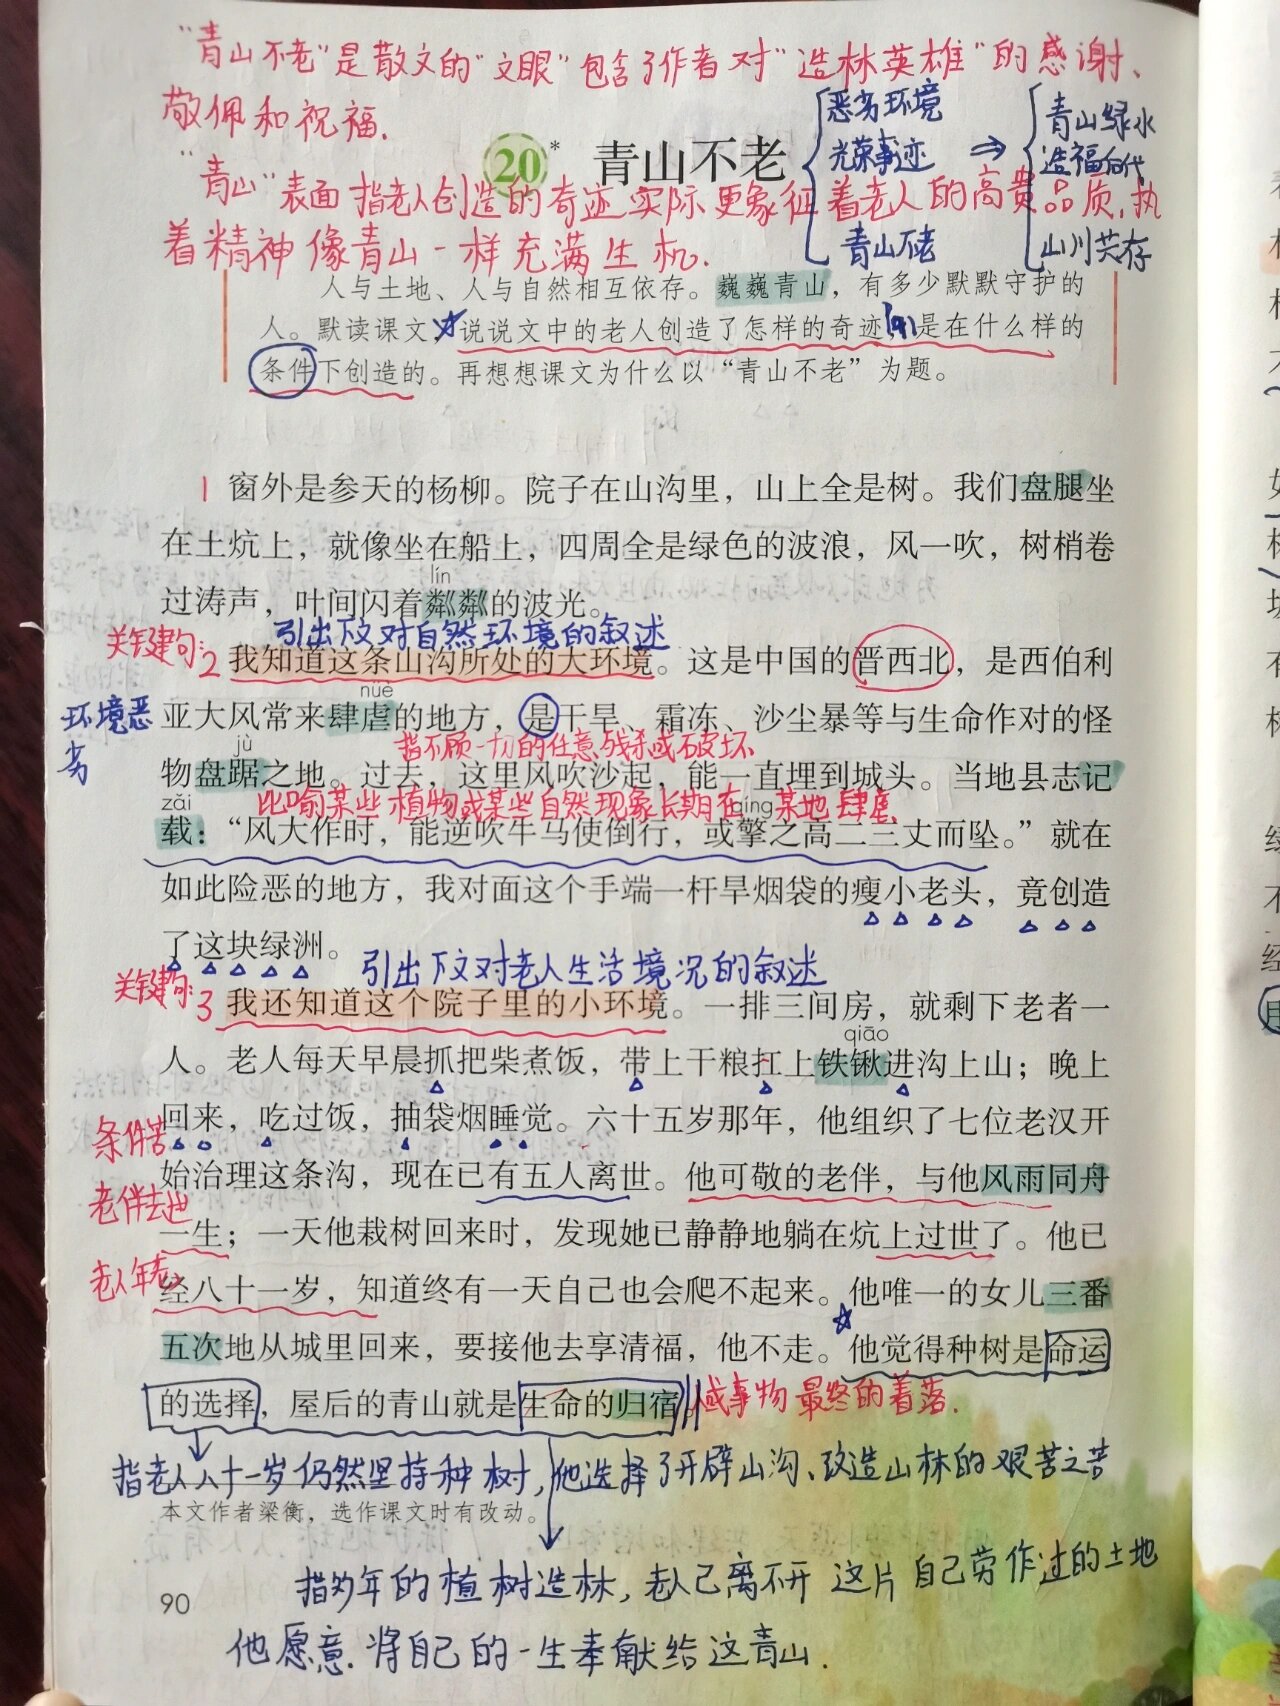 "青山不老"是散文的"文眼"包含了作者对"造林英雄"的感谢、
敬佩和祝福.
恶劣环境
光荣事迹
青山不老
⇒
青山绿水
造福后代
山川共存
20* 青山不老
"青山"表面指老人创造的奇迹 实际更象征着老人的高贵品质,执
着精神像青山一样充满生机.
人与土地、人与自然相互依存。巍巍青山，有多少默默守护的
人。默读课文，说说文中的老人创造了怎样的奇迹，是在什么样的
条件下创造的。再想想课文为什么以“青山不老”为题。
1 窗外是参天的杨柳。院子在山沟里，山上全是树。我们盘腿坐
在土炕上，就像坐在船上，四周全是绿色的波浪，风一吹，树梢卷
lín
过涛声，叶间闪着粼粼的波光。
关键句: 引出下文对自然环境的叙述
2 我知道这条山沟所处的大环境。这是中国的晋西北，是西伯利
nüè
环境恶劣
亚大风常来肆虐的地方，是干旱、霜冻、沙尘暴等与生命作对的怪
指不顾一切的任意残杀或破坏
jù
物盘踞之地。过去，这里风吹沙起，能一直埋到城头。当地县志记
比喻某些植物或某些自然现象长期在某地肆虐
zǎi qíng
载：“风大作时，能逆吹牛马使倒行，或擎之高二三丈而坠。”就在
如此险恶的地方，我对面这个手端一杆旱烟袋的瘦小老头，竟创造
了这块绿洲。
关键句: 引出下文对老人生活境况的叙述
3 我还知道这个院子里的小环境。一排三间房，就剩下老者一
qiāo
人。老人每天早晨抓把柴煮饭，带上干粮扛上铁锹进沟上山；晚上
条件苦
回来，吃过饭，抽袋烟睡觉。六十五岁那年，他组织了七位老汉开
始治理这条沟，现在已有五人离世。他可敬的老伴，与他风雨同舟
老伴去世
一生；一天他栽树回来时，发现她已静静地躺在炕上过世了。他已
老人年老
经八十一岁，知道终有一天自己也会爬不起来。他唯一的女儿三番
五次地从城里回来，要接他去享清福，他不走。他觉得种树是命运
的选择，屋后的青山就是生命的归宿。
事物最终的着落.
指老人八十一岁仍然坚持种树,他选择了开辟山沟、改造山林的艰苦之苦
本文作者梁衡，选作课文时有改动。
指多年的植树造林,老人已离不开这片自己劳作过的土地
90
他愿意将自己的一生奉献给这青山.